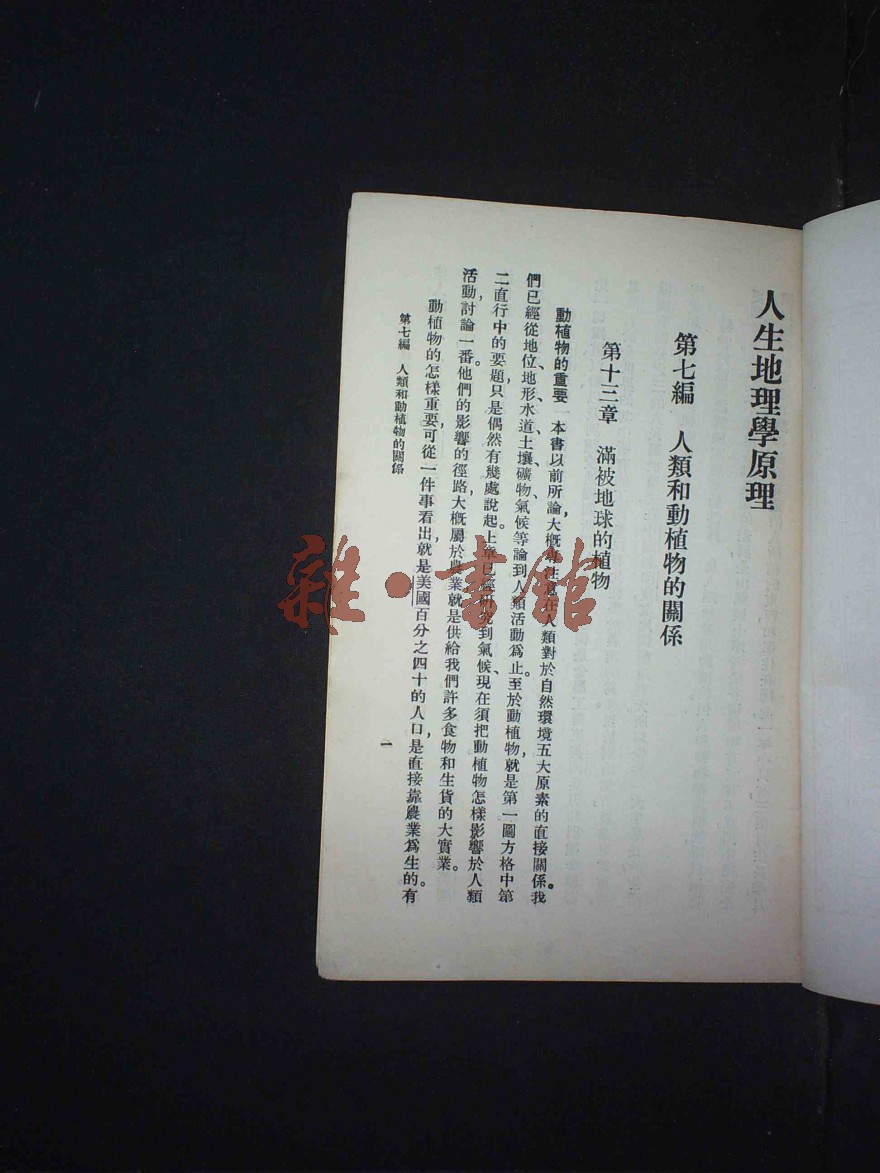 人生地理學原理
第七編　人類和動植物的關係
第十三章　滿被地球的植物
動植物的重要　本書以前所論，大概專注意在人類對於自然環境五大原素的直接關係。我
們已經從地位、地形、水道、土壤、礦物、氣候等論到人類活動爲止。至於動植物，就是第一圖方格中第
二直行中的要題，只是偶然有幾處說起。上章已經研究到氣候、現在須把動植物怎樣影響於人類
活動，討論一番。他們的影響的徑路大概屬於農業就是供給我們許多食物和生貨的大實業。
動植物的怎樣重要，可從一件事看出就是美國百分之四十的人口，是直接靠農業爲生的。有
第七編　人類和動植物的關係
一
雜·書館